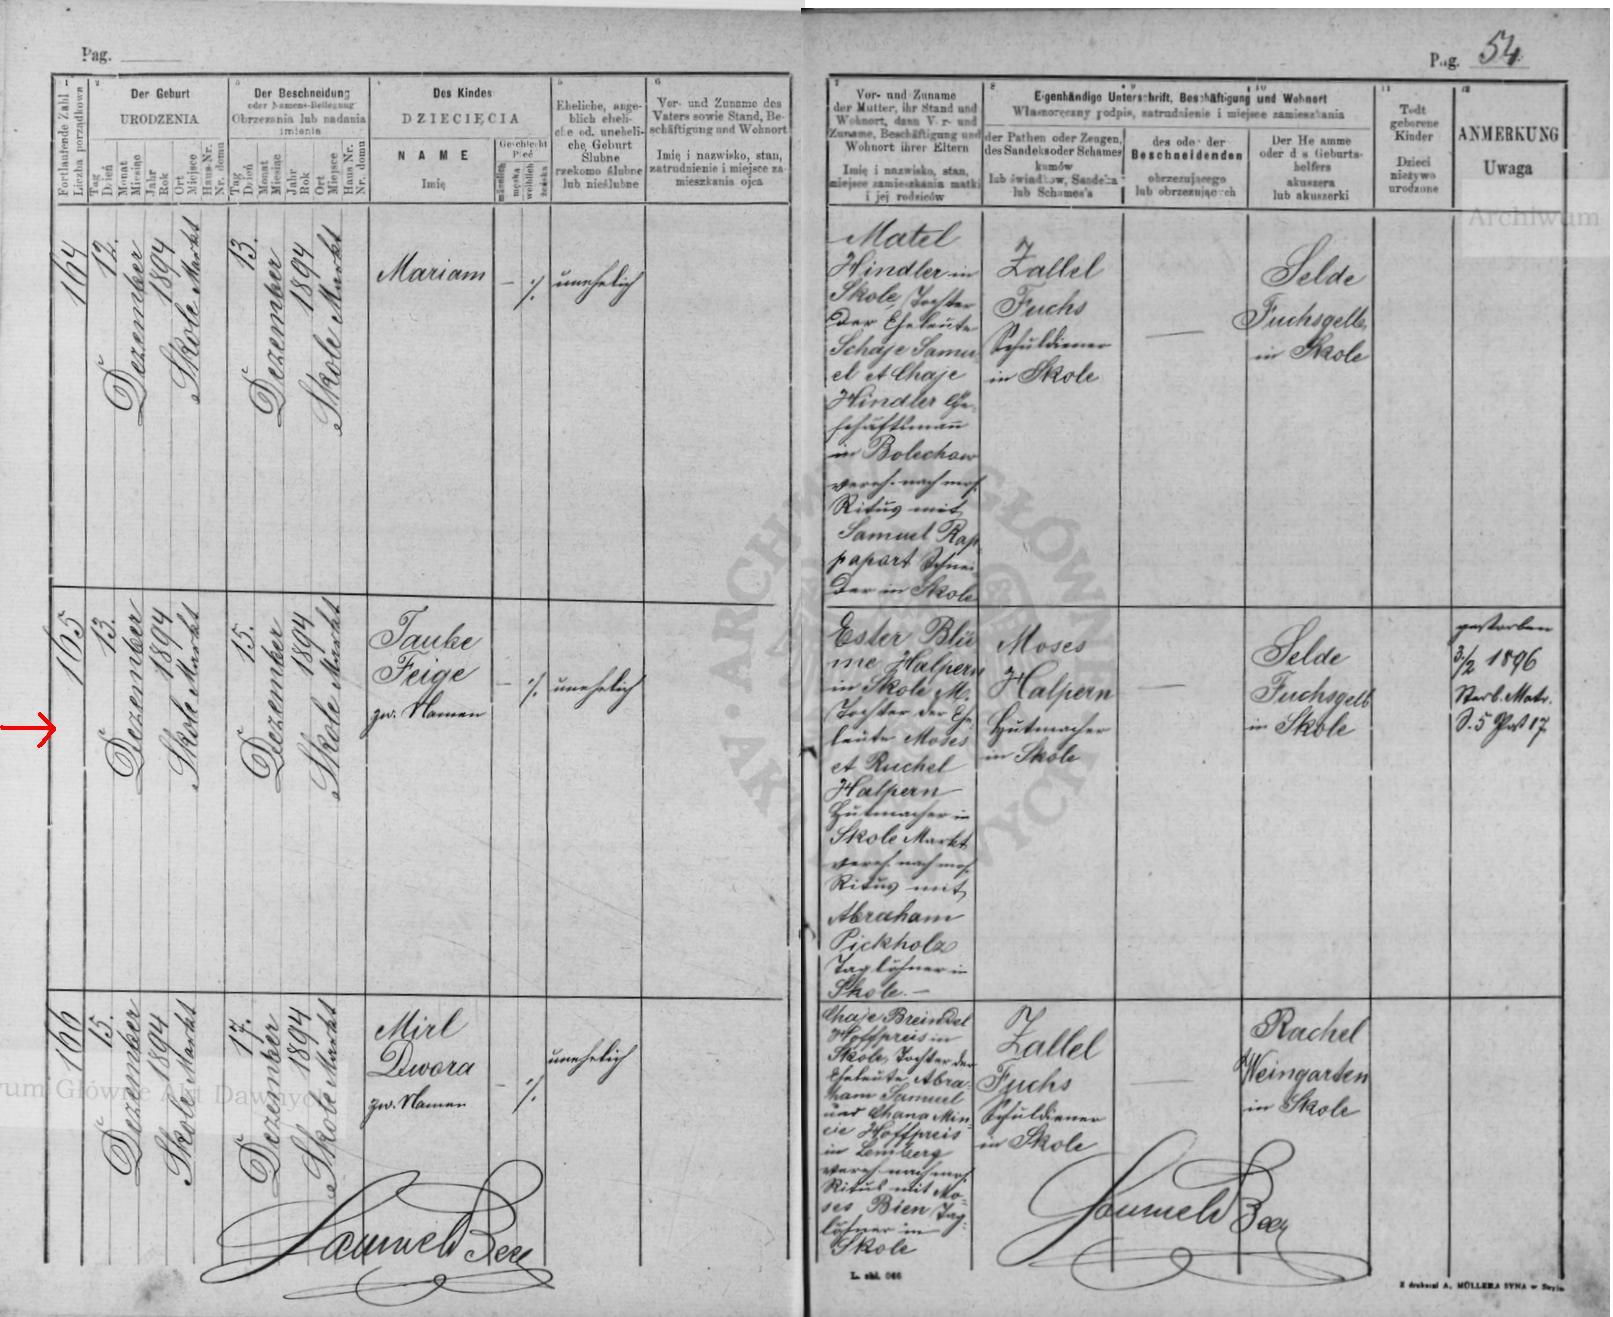 Pag.
1
Fortlaufende Zahl
Liczba porządkowa
2
Der Geburt
URODZENIA
Tag
Dzień
Monat
Miesiąc
Jahr
Rok
Ort
Miejsce
Haus-Nr.
Nr. domu
3
Der Beschneidung
oder Namens-Beilegung
Obrzezania lub nadania
imienia
Tag
Dzień
Monat
Miesiąc
Jahr
Rok
Ort
Miejsce
Haus Nr.
Nr. domu
4
Des Kindes
DZIECIĘCIA
NAME
Imię
Geschlecht
Płeć
männlich
męska
weiblich
żeńska
5
Eheliche, ange-
blich eheli-
che od. uneheli-
che Geburt
Ślubne
rzekomo ślubne
lub nieślubne
6
Vor- und Zuname des
Vaters sowie Stand, Be-
schäftigung und Wohnort
Imię i nazwisko, stan,
zatrudnienie i miejsce za-
mieszkania ojca
164
12.
Dezember
1894
Skole Markt
13.
Dezember
1894
Skole Markt
Mariam
unehelich
165
13.
Dezember
1894
Skole Markt
15.
Dezember
1894
Skole Markt
Taube
Feige
zw. Namen
unehelich
166
15.
Dezember
1894
Skole Markt
17.
Dezember
1894
Skole Markt
Mirl
Dwora
zw. Namen
unehelich
Pag. 54
7
Vor- und Zuname
der Mutter, ihr Stand und
Wohnort, dann Vor- und
Zuname, Beschäftigung und
Wohnort ihrer Eltern
Imię i nazwisko, stan,
miejsce zamieszkania matki
i jej rodziców
8 9 10
Eigenhändige Unterschrift, Beschäftigung und Wohnort
Własnoręczny podpis, zatrudnienie i miejsce zamieszkania
der Pathen oder Zeugen,
des Sandeks oder Schames
kumów
lub świadków, Sandeka
lub Schames'a
des oder der
Beschneidenden
obrzezującego
lub obrzezujących
Der Hebamme
oder des Geburts-
helfers
akuszera
lub akuszerki
11
Todt
geborene
Kinder
Dzieci
nieżywo
urodzone
12
ANMERKUNG
Uwaga
Matel
Hindler in
Skole, Tochter
der Eheleute
Schaje Samu-
el et Chaje
Hindler Ge-
schäftsmann
in Bolechow
vereh. nach mos.
Ritus mit
Samuel Rap-
paport Schnei-
der in Skole
Zallel
Fuchs
Schuldiener
in Skole
Selde
Fuchsgelb
in Skole
Ester Blü-
me Halpern
in Skole M.
Tochter der Ehe-
leute Moses
et Ruchel
Halpern
Hutmacher in
Skole Markt
vereh. nach mos.
Ritus mit
Abraham
Pickholz
Taglöhner in
Skole.
Moses
Halpern
Hutmacher
in Skole
Selde
Fuchsgelb
in Skole
gestorben
3/2 1896
Sterb. Matr.
S. 5 Post 17
Chaje Breindel
Hoffpreis in
Skole, Tochter der
Eheleute Abra-
ham Samuel
und Chana Min-
cie Hoffpreis
in Lemberg
vereh. nach mos.
Ritus mit Mo-
ses Bien Tag-
löhner in
Skole
Zallel
Fuchs
Schuldiener
in Skole
Rachel
Weingarten
in Skole
L. skl. 066
Z drukarni A. MÜLLERA SYNA w Stryju
Archiwum
Główne Akt Dawnych